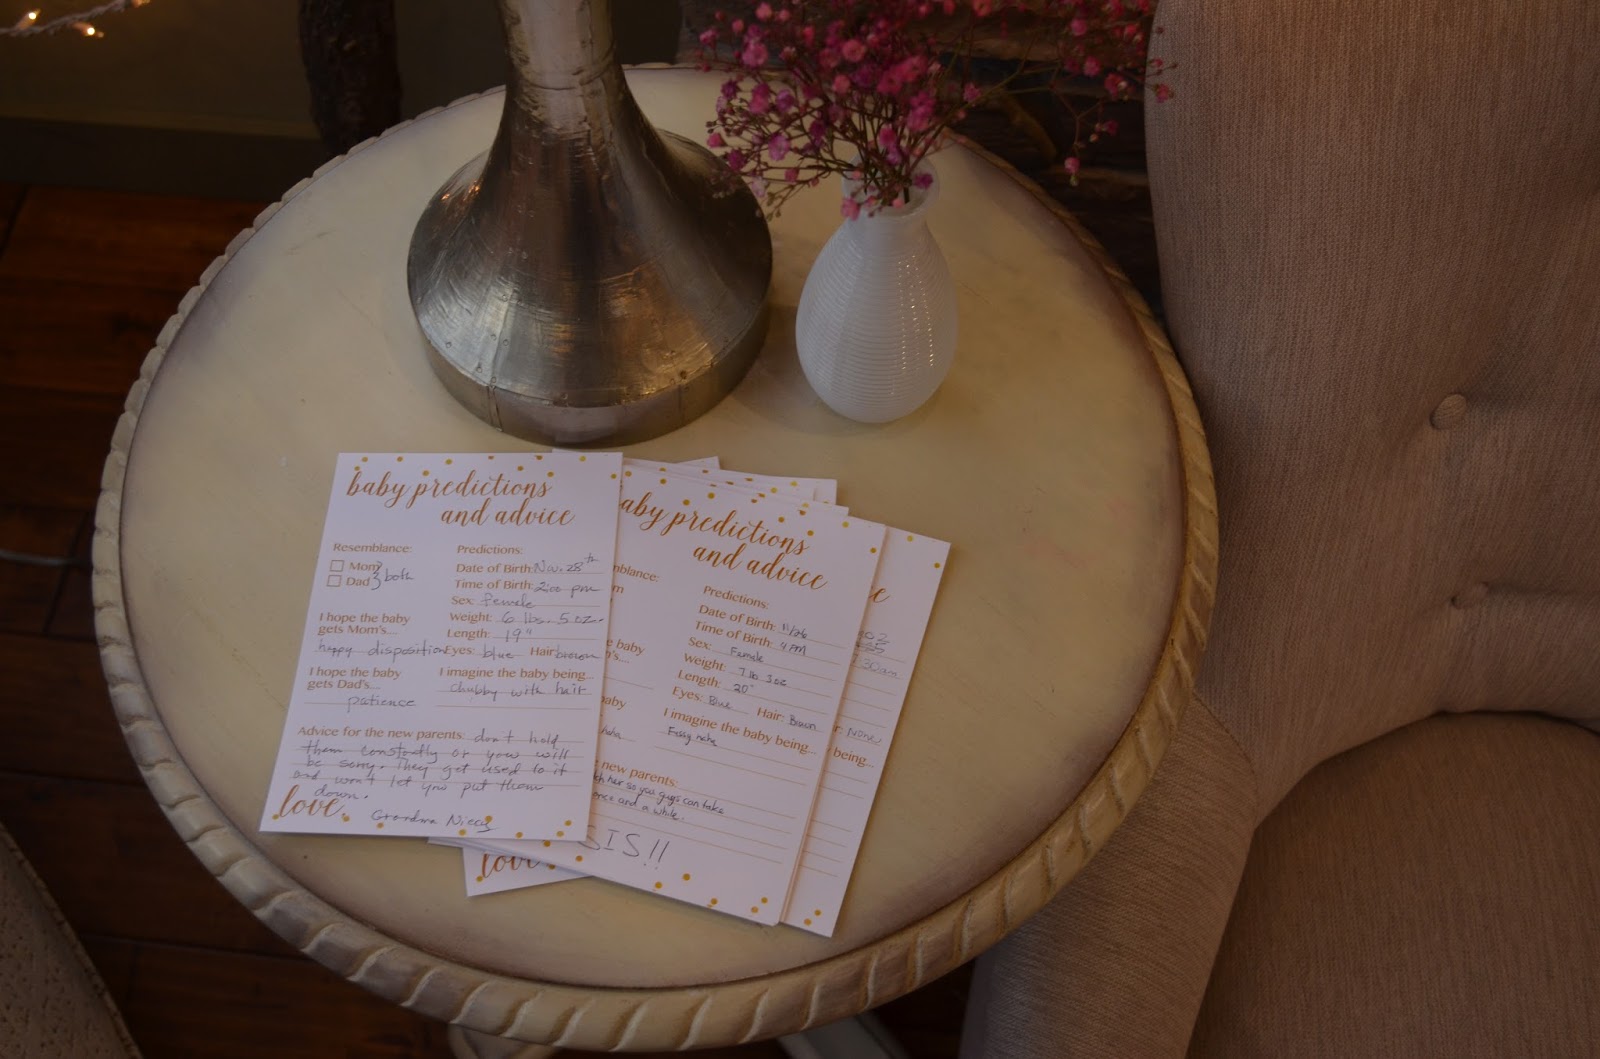 baby predictions
and advice
Resemblance:
Mom
Dad
both
I hope the baby
gets Mom's...
happy disposition
I hope the baby
gets Dad's...
patience
Predictions:
Date of Birth: Nov. 28th
Time of Birth: 2:00 pm
Sex: Female
Weight: 6 lbs. 5 oz.
Length: 19"
Eyes: blue Hair: brown
I imagine the baby being...
chubby with hair
Advice for the new parents: don't hold
them constantly or you will
be sorry. They get used to it
and won't let you put them
down.
love,
Grandma
baby predictions
and advice
Predictions:
Date of Birth: 11/26
Time of Birth: 4 PM
Sex: Female
Weight: 7 lb 3 oz
Length: 20"
Eyes: Blue Hair: Brown
I imagine the baby being...
haha
new parents:
her so you guys can take
once and a while.
SIS!!
love
:30am
None
being...